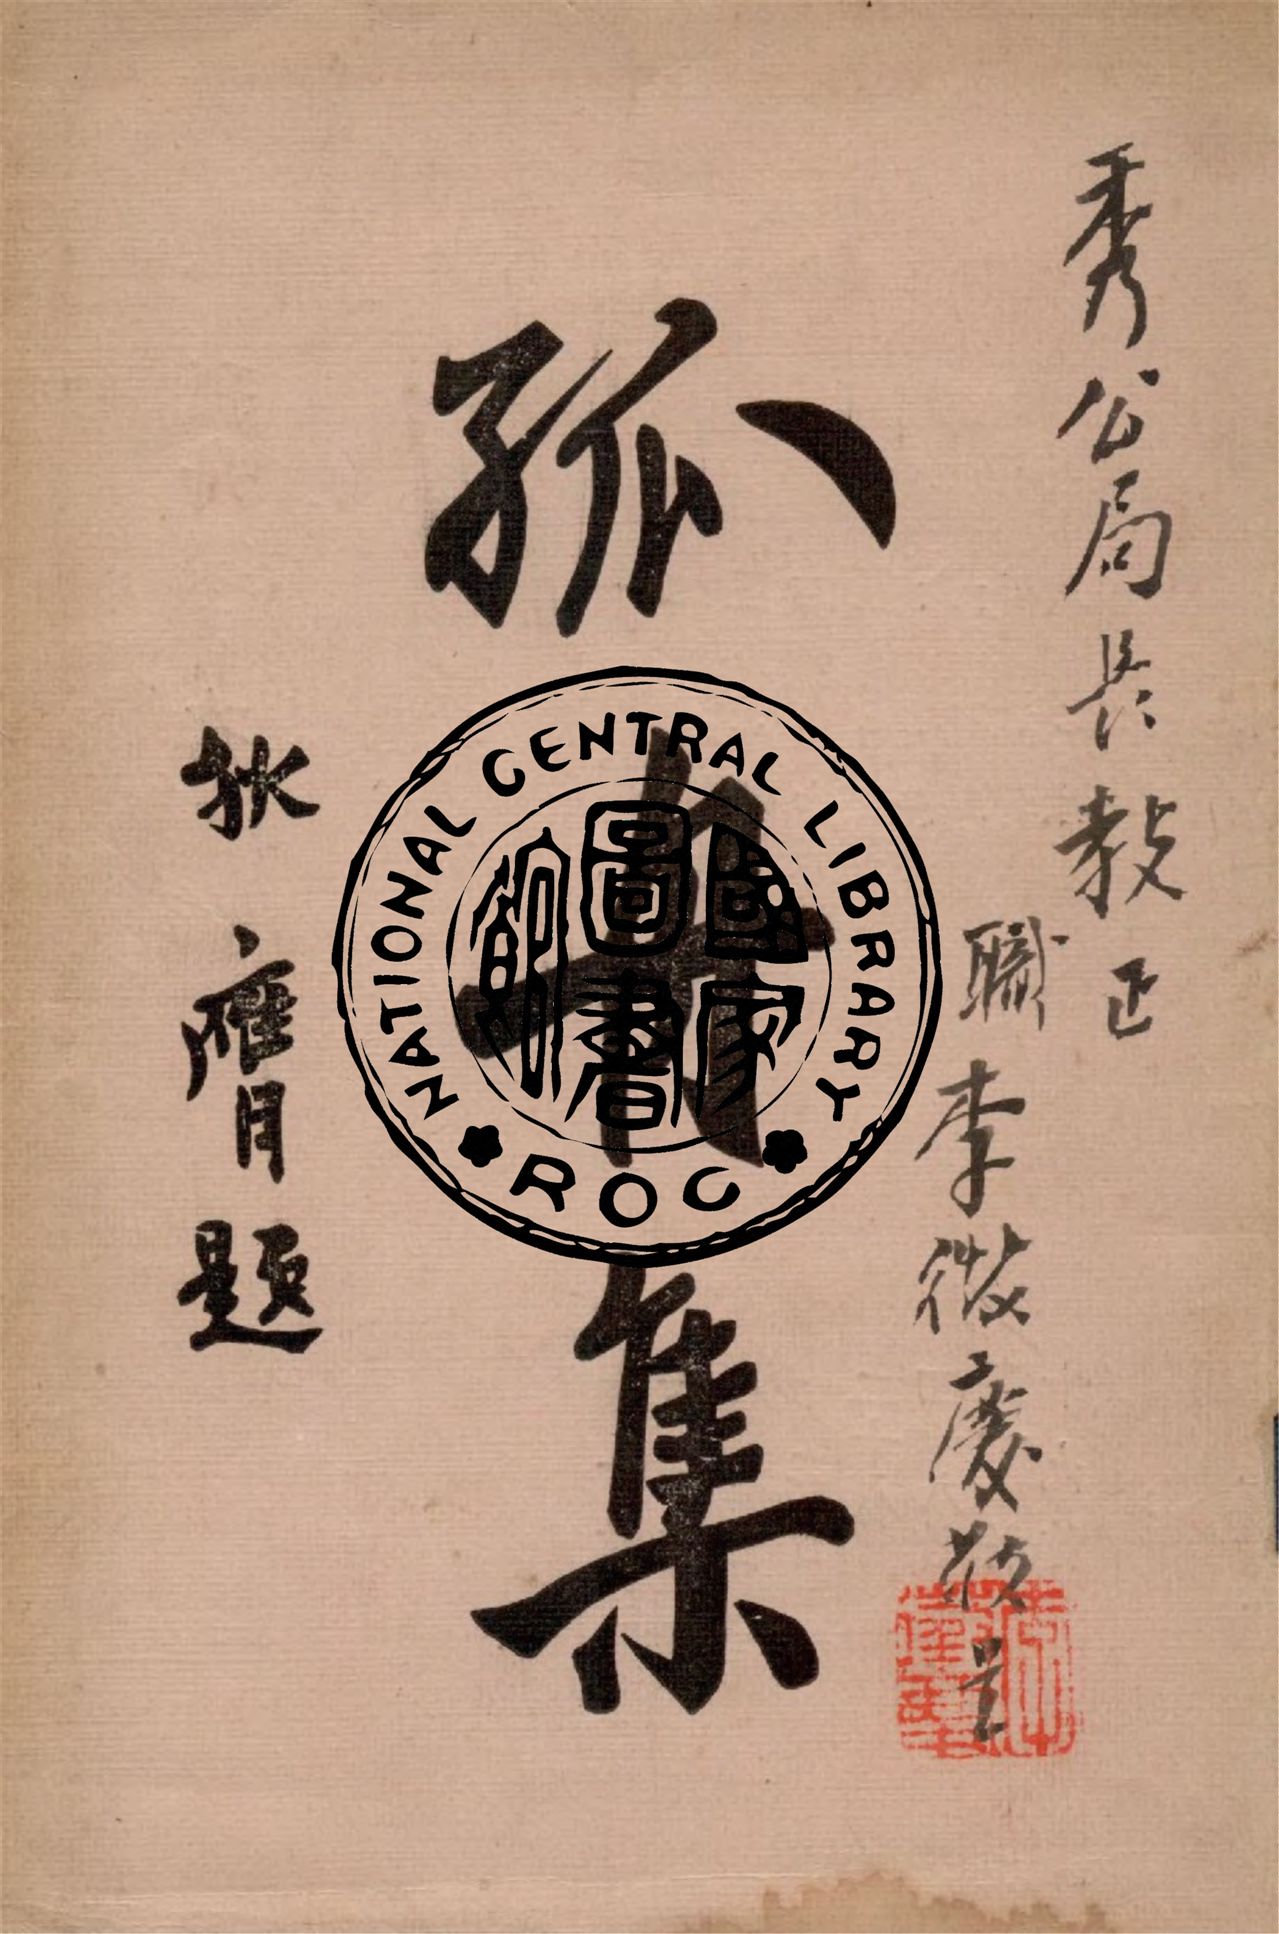 秀公局長教正
職李徵慶敬呈
孤舟集
狄膺題
NATIONAL CENTRAL LIBRARY
ROC
國家圖書館